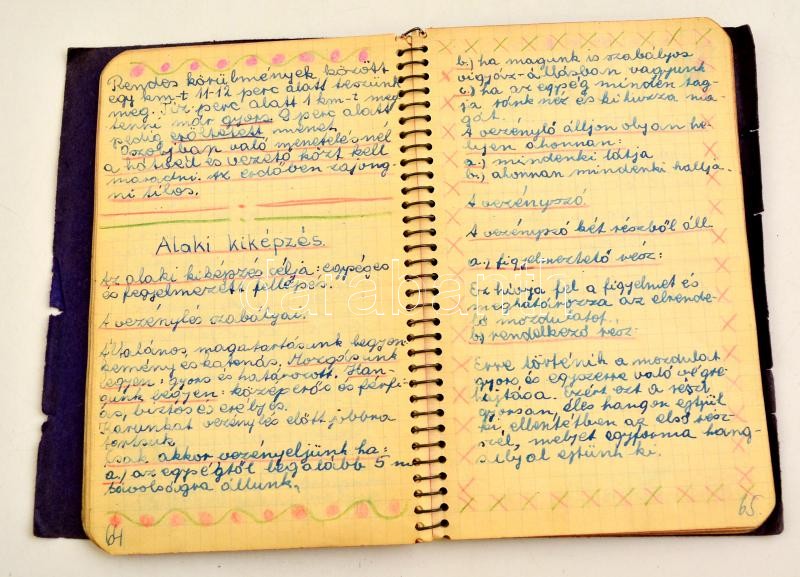 Rendes körülmények között
egy km-t 11-12 perc alatt teszünk
meg. Tíz perc alatt 1 km-t meg-
tenni már gyors. 9 perc alatt
pedig erőltetett menet.
Oszlopban való menetelésnél
a hátvéd és vezető közt kell
maradni. Az erdőben zajong-
ni tilos.
Alaki kiképzés.
Az alaki kiképzés célja: egységes
és fegyelmezett fellépés.
A vezénylés szabályai:
Általános, magatartásunk legyen
kemény és katonás. Mozgásunk
legyen: gyors és határozott. Han-
gunk legyen: középerős és férfi-
as, biztos és erélyes.
Karunkat vezénylés előtt jobbra
tartsuk.
Csak akkor vezényeljünk ha:
a.) az egységtől legalább 5 m
távolságra állunk,
64
b.) ha magunk is szabályos
vigyázz-állásban vagyunk
c.) ha az egység minden tag-
ja ránk néz és kihúzza ma-
gát.
A vezénylő álljon olyan he-
lyen ahonnan:
a.) mindenki látja
b.) ahonnan mindenki hallja.
A vezényszó.
A vezényszó két részből áll.
a.) figyelmeztető rész:
Ez hívja fel a figyelmet és
meghatározza az elrende-
lő mozdulatot.
b.) rendelkező rész:
Erre történik a mozdulat
gyors és egyszerre való végre-
hajtása. Ezért ezt a részt
gyorsan, éles hangon ejtjük
ki, ellentétben az első rész-
szel, melyet egyforma hang-
súllyal ejtünk ki.
65.
darabanth